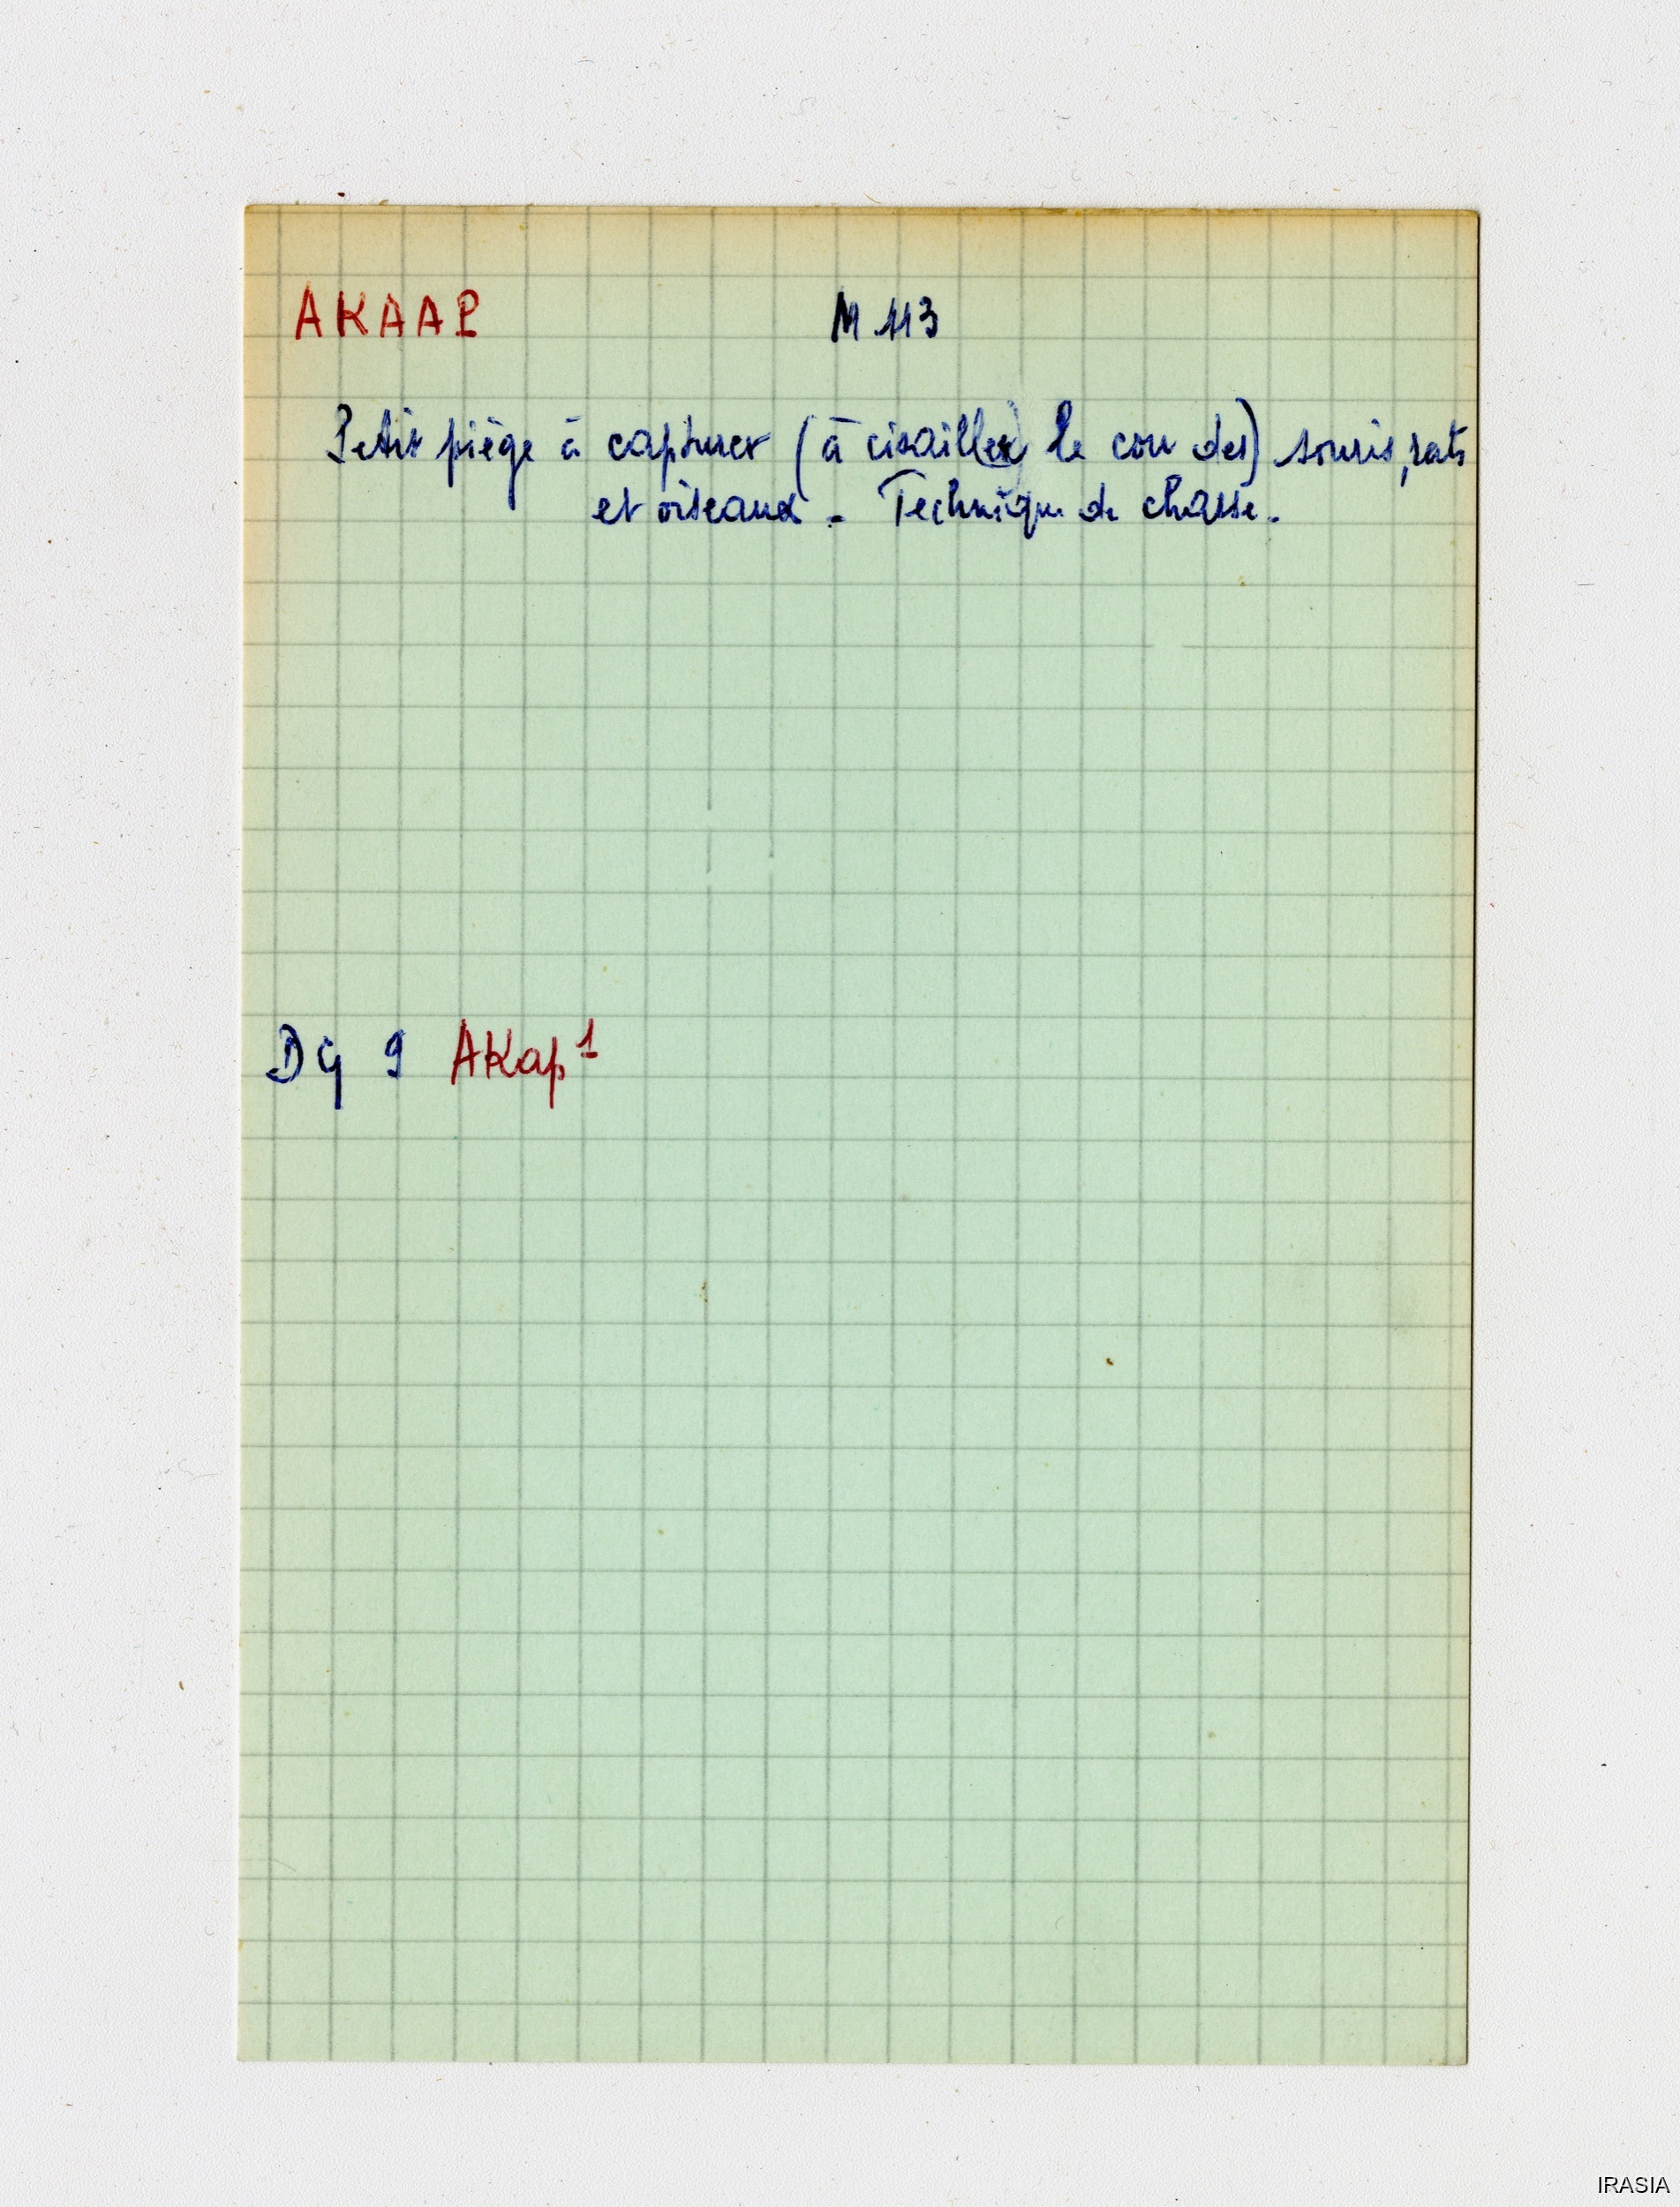 AKAAP M.113
Petit piège à capturer (à cisailler le cou des) souris, rats
et oiseaux. Technique de chasse.
DG 9 AKap¹
IRASIA